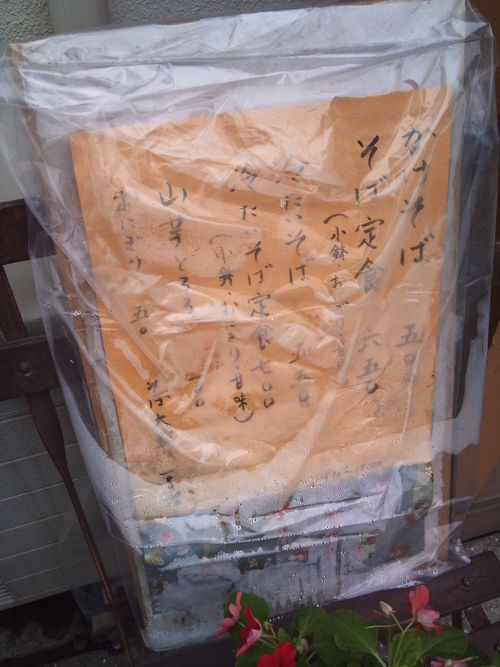 かけそば 五〇〇
そば定食 六五〇
(小鉢 おにぎり 甘味)
冷たいそば 五五〇
冷たいそば定食 七〇〇
(小鉢 おにぎり 甘味)
山芋とろろ
おにぎり 五〇